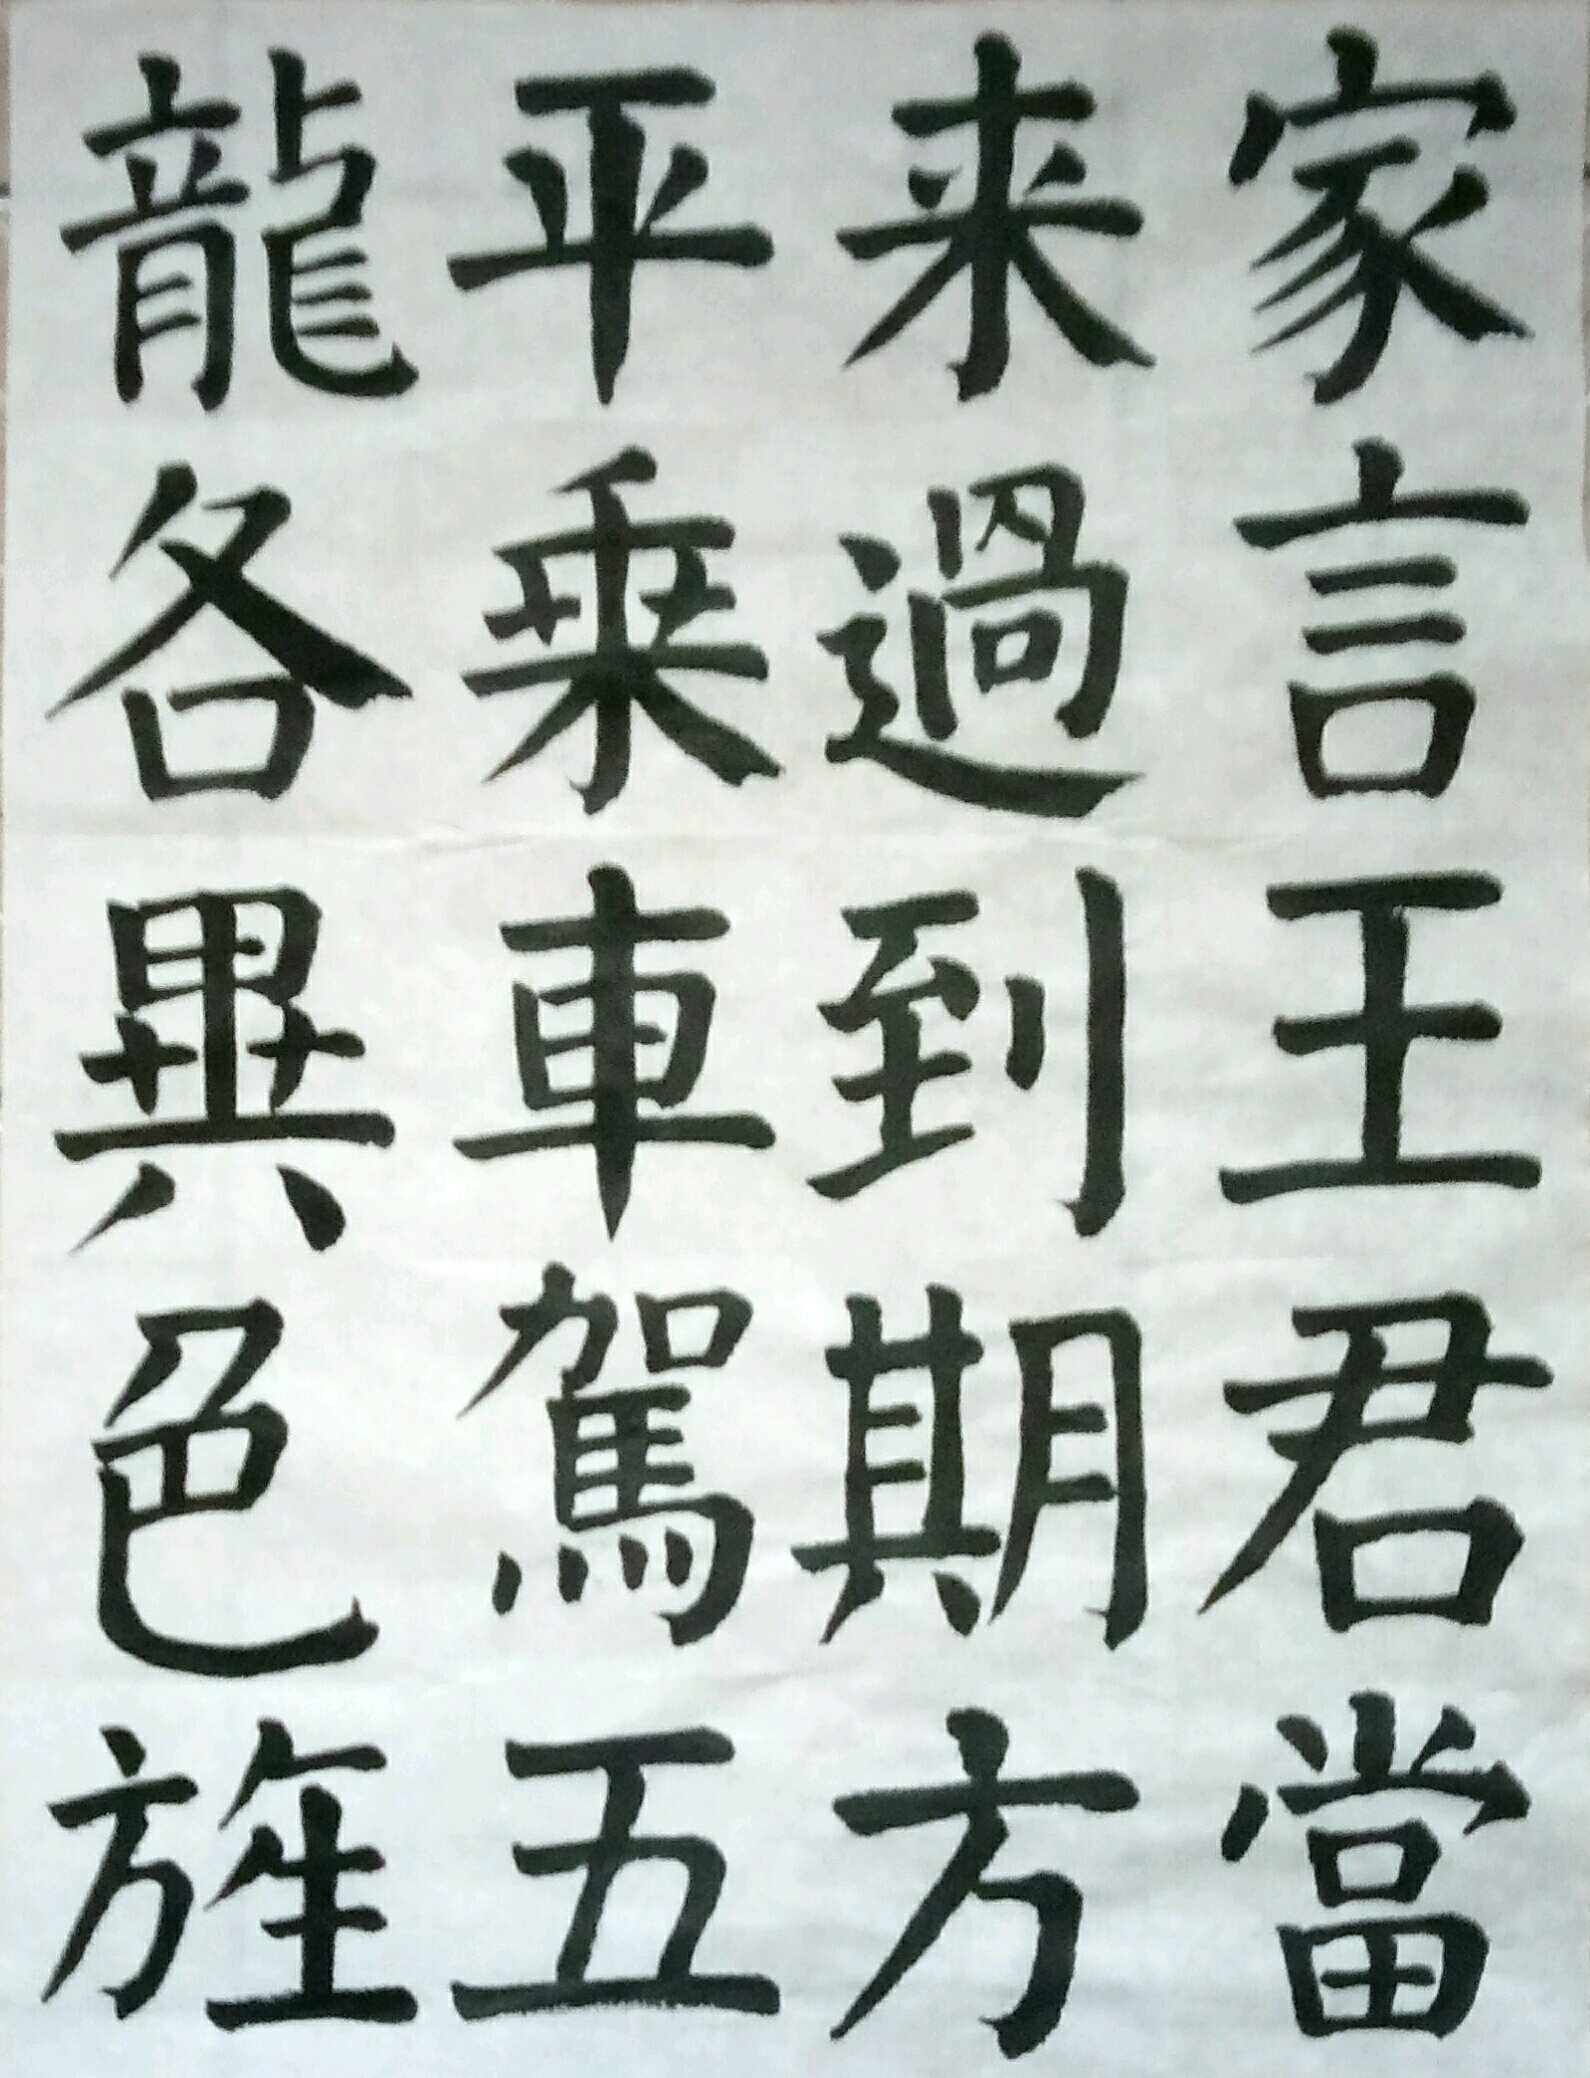 家言王君當
来過到期方
平乗車駕五
龍各異色旌